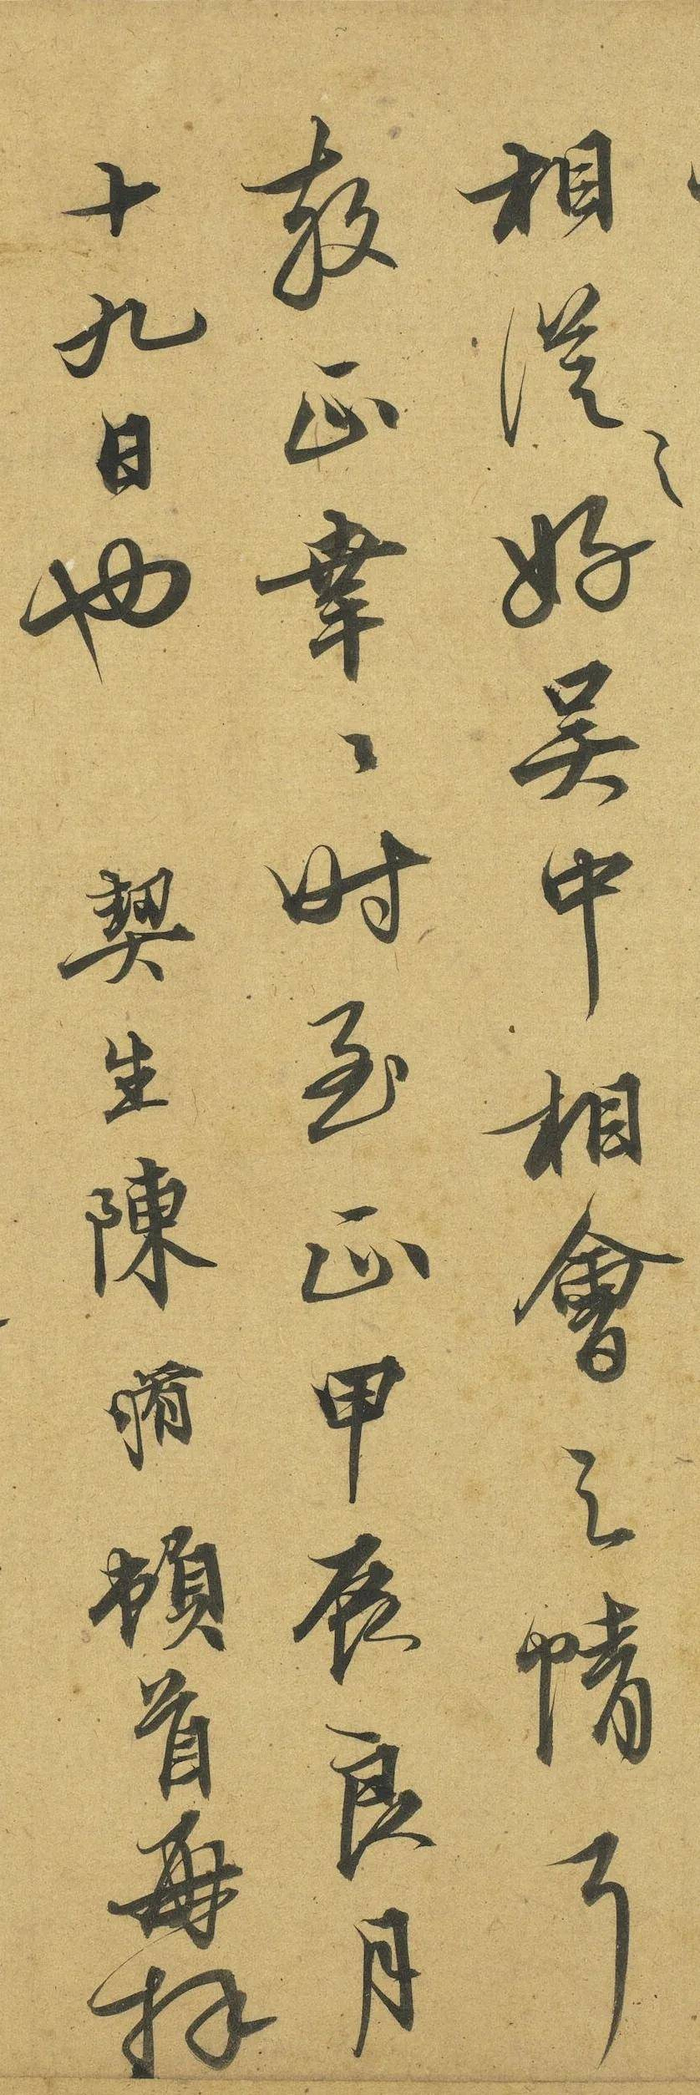 相從之好吳中相會之情了
教正幸〻時至正甲辰良月
十九日也 契生陳脩頓首再拜